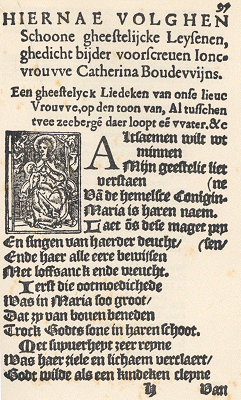 97
HIERNAE VOLGHEN
Schoone gheestelijcke Leysenen,
ghedicht bijder voorscreuen Ionc-
vrouvve Catherina Boudevvijns.
Een gheestelyck Liedeken van onse lieue
Vrouvve, op den toon van, Al tusschen
tvee zeebergē daer loopt eē vvater. &c
ALtsaemen wilt wt
minnen
Mijn geestelic liet
verstaen (ne
Vā de hemelsce Conigin-
Maria is haren naem.
Laet ōs dese maget prij
En singen van haerder deucht/ (sen/
Ende haer alle eere bewijsen
Met loffsanck ende vreucht.
Ierst die ootmoedichede
Was in Maria soo groot/
Dat sy van bouen beneden
Trock Godts sone in haren schoot.
Met supuerheyt zeer reyne
Was haer ziele en lichaem verclaert/
Godt wilde als een kindeken cleyne
H Van